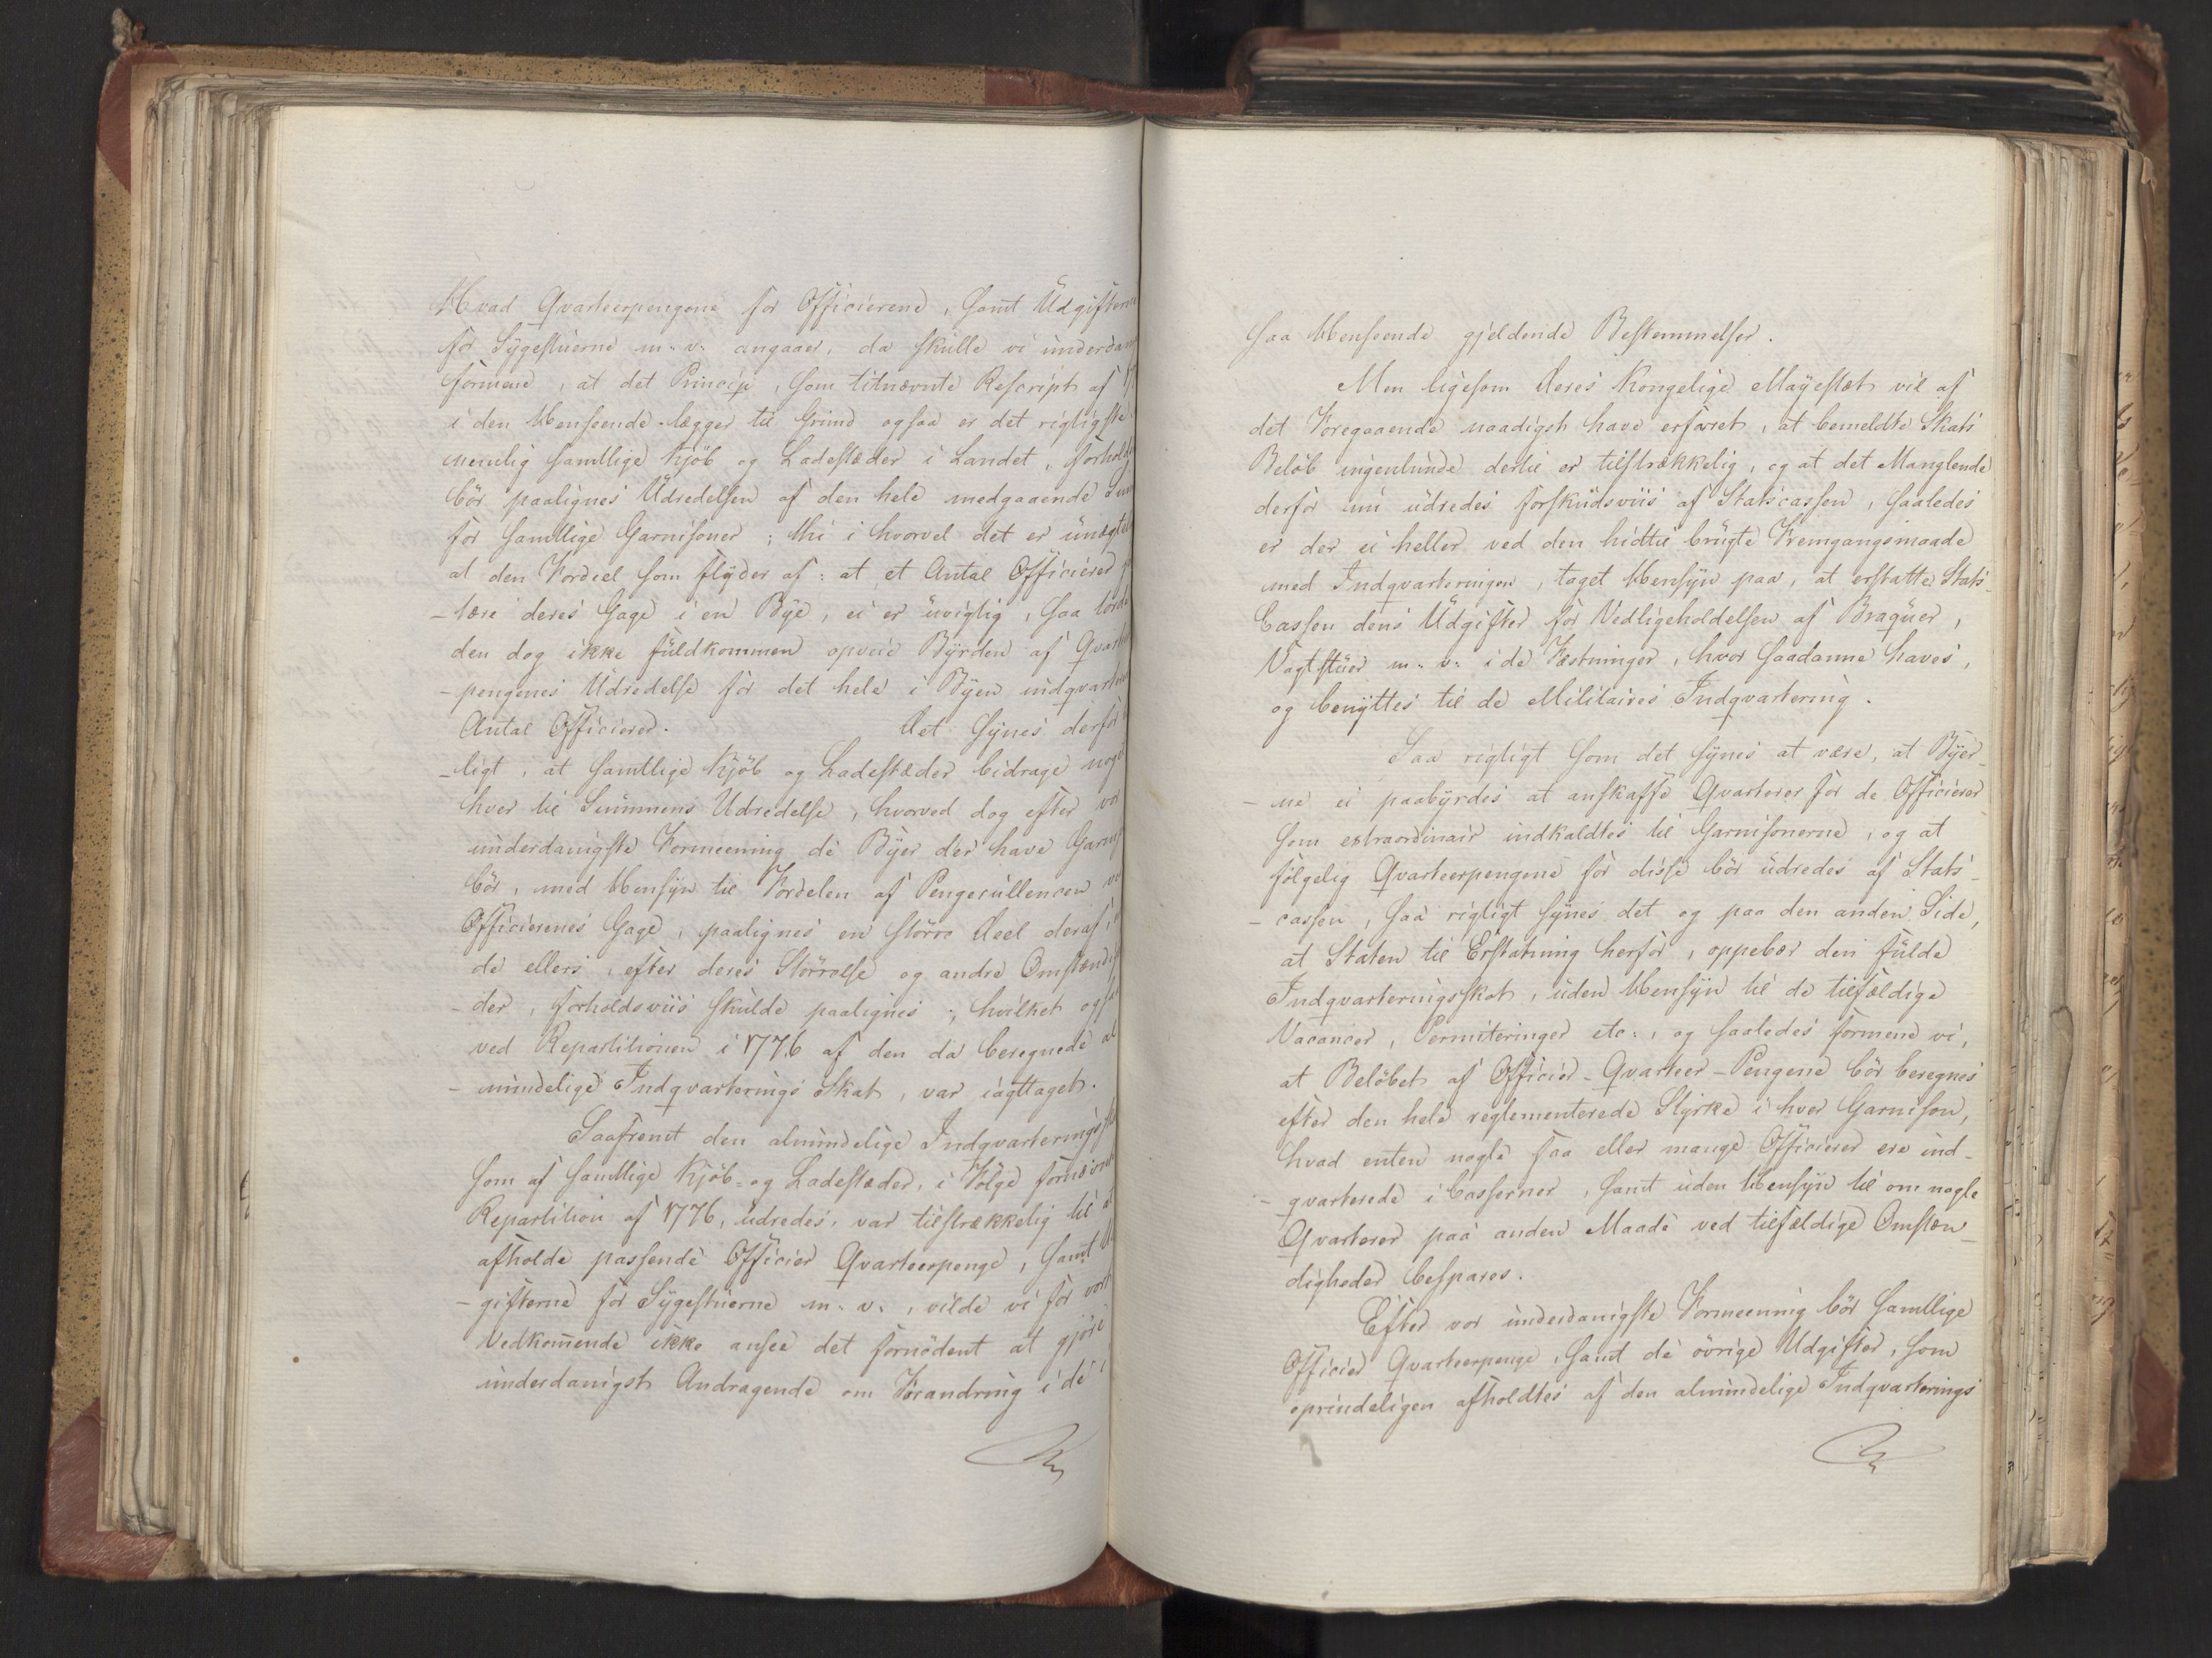 Hvad Qvarteerpengene for Officiererne, samt Udgifterne
for Sygestuerne m: v: angaaer, da skulle vi underdan
formene, at det Princip, som titnævnte Rescript af
i den Henseende lægger til Grund ogsaa er det rigtigste
nemlig samtlige Kjöb og Ladestæder i Landet, forholds
bör paalignes Udredelsen af den hele medgaaende Sum
for samtlige Garnisoner; thi i hvorvel det er unægte
at den Fordeel som flyder af: at et Antal Officierer
-tære deres Gage i en Bye, ei er uvigtig, saa torde
den dog ikke fuldkommen opveie Byrden af Qvarte
-pengenes Udredelse for det hele i Byen indqvarte
Antal Officierer. Det synes derfor
-ligt, at samtlige Kjöb og Ladestæder bidrage noget
hver til Summens Udredelse, hvorved dog efter vor
underdanigste Formeening de Byer der have Garnis
bör, med Hensyn til Fordelen af Pengecullencen ve
Officierenes Gage, paalignes en större Deel deraf,
de ellers efter deres Störrelse og andre Omstændig
-der, forholdsviis skulde paalignes; hvilket ogsaa
ved Repartitionen i 1776 af den da beregnede al
-mindelige Indqvarterings Skat, var iagttaget.
Saafremt den almindelige Indqvarteringssk
som af samtlige Kjöb- og Ladestæder, i Fölge fornævnte
Repartition af 1776, udredes, var tilstrækkelig til at
afholde passende Officier Qvarteerpenge, samt U
-gifterne for Sygestuerne m. v., vilde vi for vort
Vedkommende ikke ansee det fornödent at gjöre
underdanigst Andragende om Forandring i de i
saa Henseende gjeldende Bestemmelser.
Men ligesom Deres Kongelige Mayestæt vil af
det Foregaaende naadigst have erfaret, at bemeldte Skats
Belöb ingenlunde dertil er tilstrækkelig, og at det Manglende
derfor nu udredes forskudsviis af Statscassen, saaledes
er der ei heller ved den hidtil brugte Fremgangsmaade
med Indqvarteringen, taget Hensyn paa, at erstatte Stats-
Cassen dens Udgifter for Vedligeholdelsen af Braquer,
Vagtstuer m. v. i de Fæstninger, hvor saadanne haves,
og benyttes til de Militaires Indqvartering.
Saa rigtigt som det synes at være, at Byer-
-ne ei paabyrdes at anskaffe Qvarterer for de Officierer
som extraordinair indkaldtes til Garnisonerne, og at
fölgelig Qvarteerpengene for disse bör udredes af Stats-
-cassen, saa rigtigt synes det og paa den anden Side,
at Staten til Erstatning herfor, oppebær den fulde
Indqvarteringsskat, uden Hensyn til de tilfældige
Vacancer, Permiteringer etc:, og saaledes formene vi,
at Belöbet af Officier-Qvarteer-Pengene bör beregnes
efter den hele reglementerede Styrke i hver Garnison,
hvad enten nogle faa eller mange Officierer ere ind-
-qvarterede i Casserner, samt uden Hensyn til om nogle
Qvarterer paa anden Maade ved tilfældige Omstæn-
digheder bespares.
Efter vor underdanigste Formeening bör samtlige
Officier Qvarteerpenge, samt de övrige Udgifter, som
oprindeligen afholdtes af den almindelige Indqvarterings